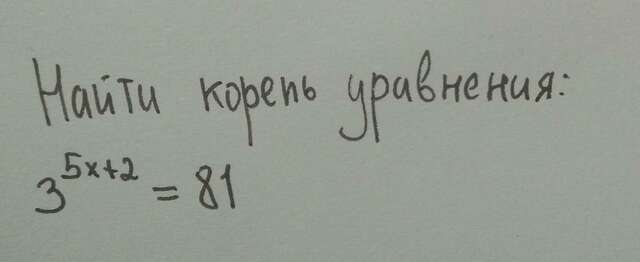 Найти корень уравнения:
3^{5x+2} = 81